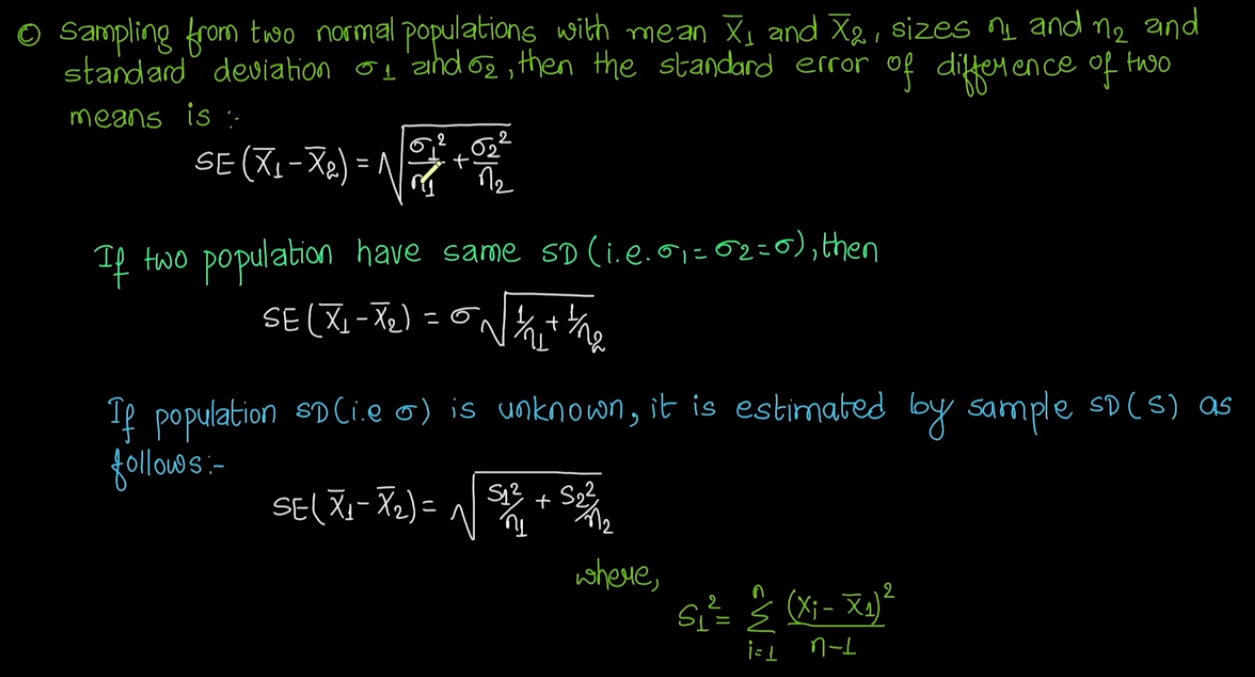 © Sampling from two normal populations with mean X̅₁ and X̅₂, sizes n₁ and n₂ and
standard deviation σ₁ and σ₂, then the standard error of difference of two
means is :-
SE (X̅₁ - X̅₂) = √(σ₁²/n₁ + σ₂²/n₂)
If two population have same SD (i.e. σ₁ = σ₂ = σ), then
SE (X̅₁ - X̅₂) = σ √(1/n₁ + 1/n₂)
If population SD (i.e σ) is unknown, it is estimated by sample SD (S) as
follows :-
SE (X̅₁ - X̅₂) = √(S₁²/n₁ + S₂²/n₂)
where,
S₁² = Σ_{i=1}^{n} (Xᵢ - X̅₁)² / n-1